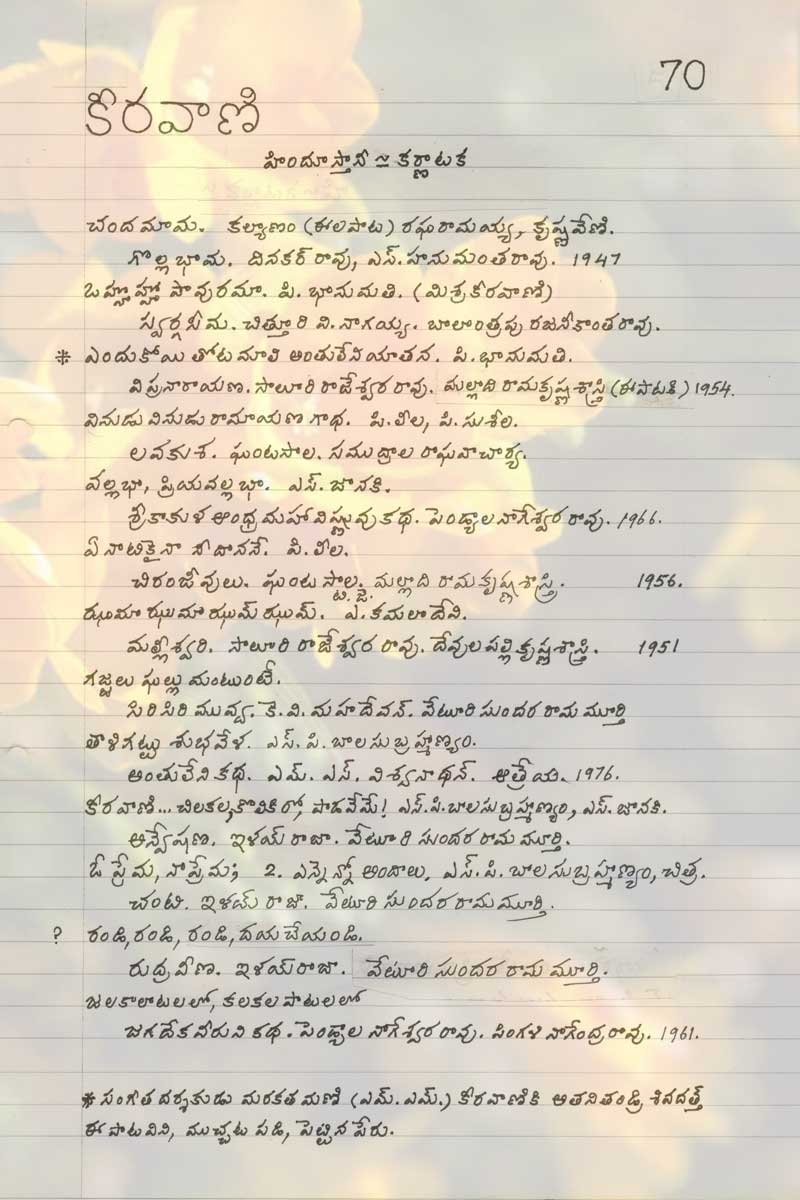 70
కీరవాణి
హిందూస్తానీ ≃ కర్ణాటక
చందమామ. కల్యాణం (ఈలపాట) రఘురామయ్య, కృష్ణవేణి.
గొల్లభామ. దినకర్ రావు, ఎస్. హనుమంతరావు. 1947
ఓహ్హొహ్హో పావురమా. పి. భానుమతి. (మిశ్రకీరవాణి)
స్వర్గసీమ. చిత్తూరి వి. నాగయ్య. బాలాంత్రపు రజనీకాంతరావు.
* ఎందుకోయి తోటమాలి అంతులేనియాతన. పి. భానుమతి.
విప్రనారాయణ. సాలూరి రాజేశ్వరరావు. మల్లాది రామకృష్ణశాస్త్రి (ఈపాటకి) 1954.
వినుడు వినుడు రామాయణ గాథ. పి. లీల, పి. సుశీల.
లవకుశ. ఘంటసాల. సముద్రాల రాఘవాచార్య.
వల్లభా, ప్రియవల్లభా. ఎస్. జానకి.
శ్రీకాకుళ ఆంధ్రమహావిష్ణువుకథ. పెండ్యాల నాగేశ్వరరావు. 1966.
ఏనాటికైనా నీదాననే. పి. లీల.
చిరంజీవులు. ఘంటసాల. మల్లాది రామకృష్ణశాస్త్రి. 1956.
ఝుమా ఝుమా ఝుమ్ ఝుమ్. ఎ. కమలాదేవి.
మల్లీశ్వరి. సాలూరి రాజేశ్వరరావు. దేవులపల్లి కృష్ణశాస్త్రి. 1951
గజ్జలు ఘల్లుమంటుంటే.
సిరిసిరిమువ్వ. కె. వి. మహదేవన్. వేటూరి సుందరరామమూర్తి
తాళిగట్టు శుభవేళ. ఎస్. పి. బాలసుబ్రహ్మణ్యం.
అంతులేనికథ. ఎమ్. ఎస్. విశ్వనాథన్. ఆత్రేయ. 1976.
కీరవాణి... చిలకల కొలికిరో, పాడవేమే! ఎస్. పి. బాలసుబ్రహ్మణ్యం, ఎస్. జానకి.
అన్వేషణ. ఇళయ్ రాజా. వేటూరి సుందరరామమూర్తి.
ఓ ప్రేమ, నా ప్రేమ; 2. ఎన్నెన్నో అందాలు. ఎస్. పి. బాలసుబ్రహ్మణ్యం, చిత్ర.
చంటి. ఇళయ్ రాజా. వేటూరి సుందరరామమూర్తి.
? రండి, రండి, రండి, దయచేయండి.
రుద్రవీణ. ఇళయ్ రాజా. వేటూరి సుందరరామమూర్తి.
జలకాలాటలలో, కలకలపాటలలో
జగదేకవీరునికథ. పెండ్యాల నాగేశ్వరరావు. పింగళి నాగేంద్రరావు. 1961.
* సంగీత దర్శకుడు మరకతమణి (ఎమ్. ఎమ్.) కీరవాణికి ఆతనితండ్రి శివదత్త్
ఈ పాటవిని, ముచ్చటపడి, పెట్టినపేరు.